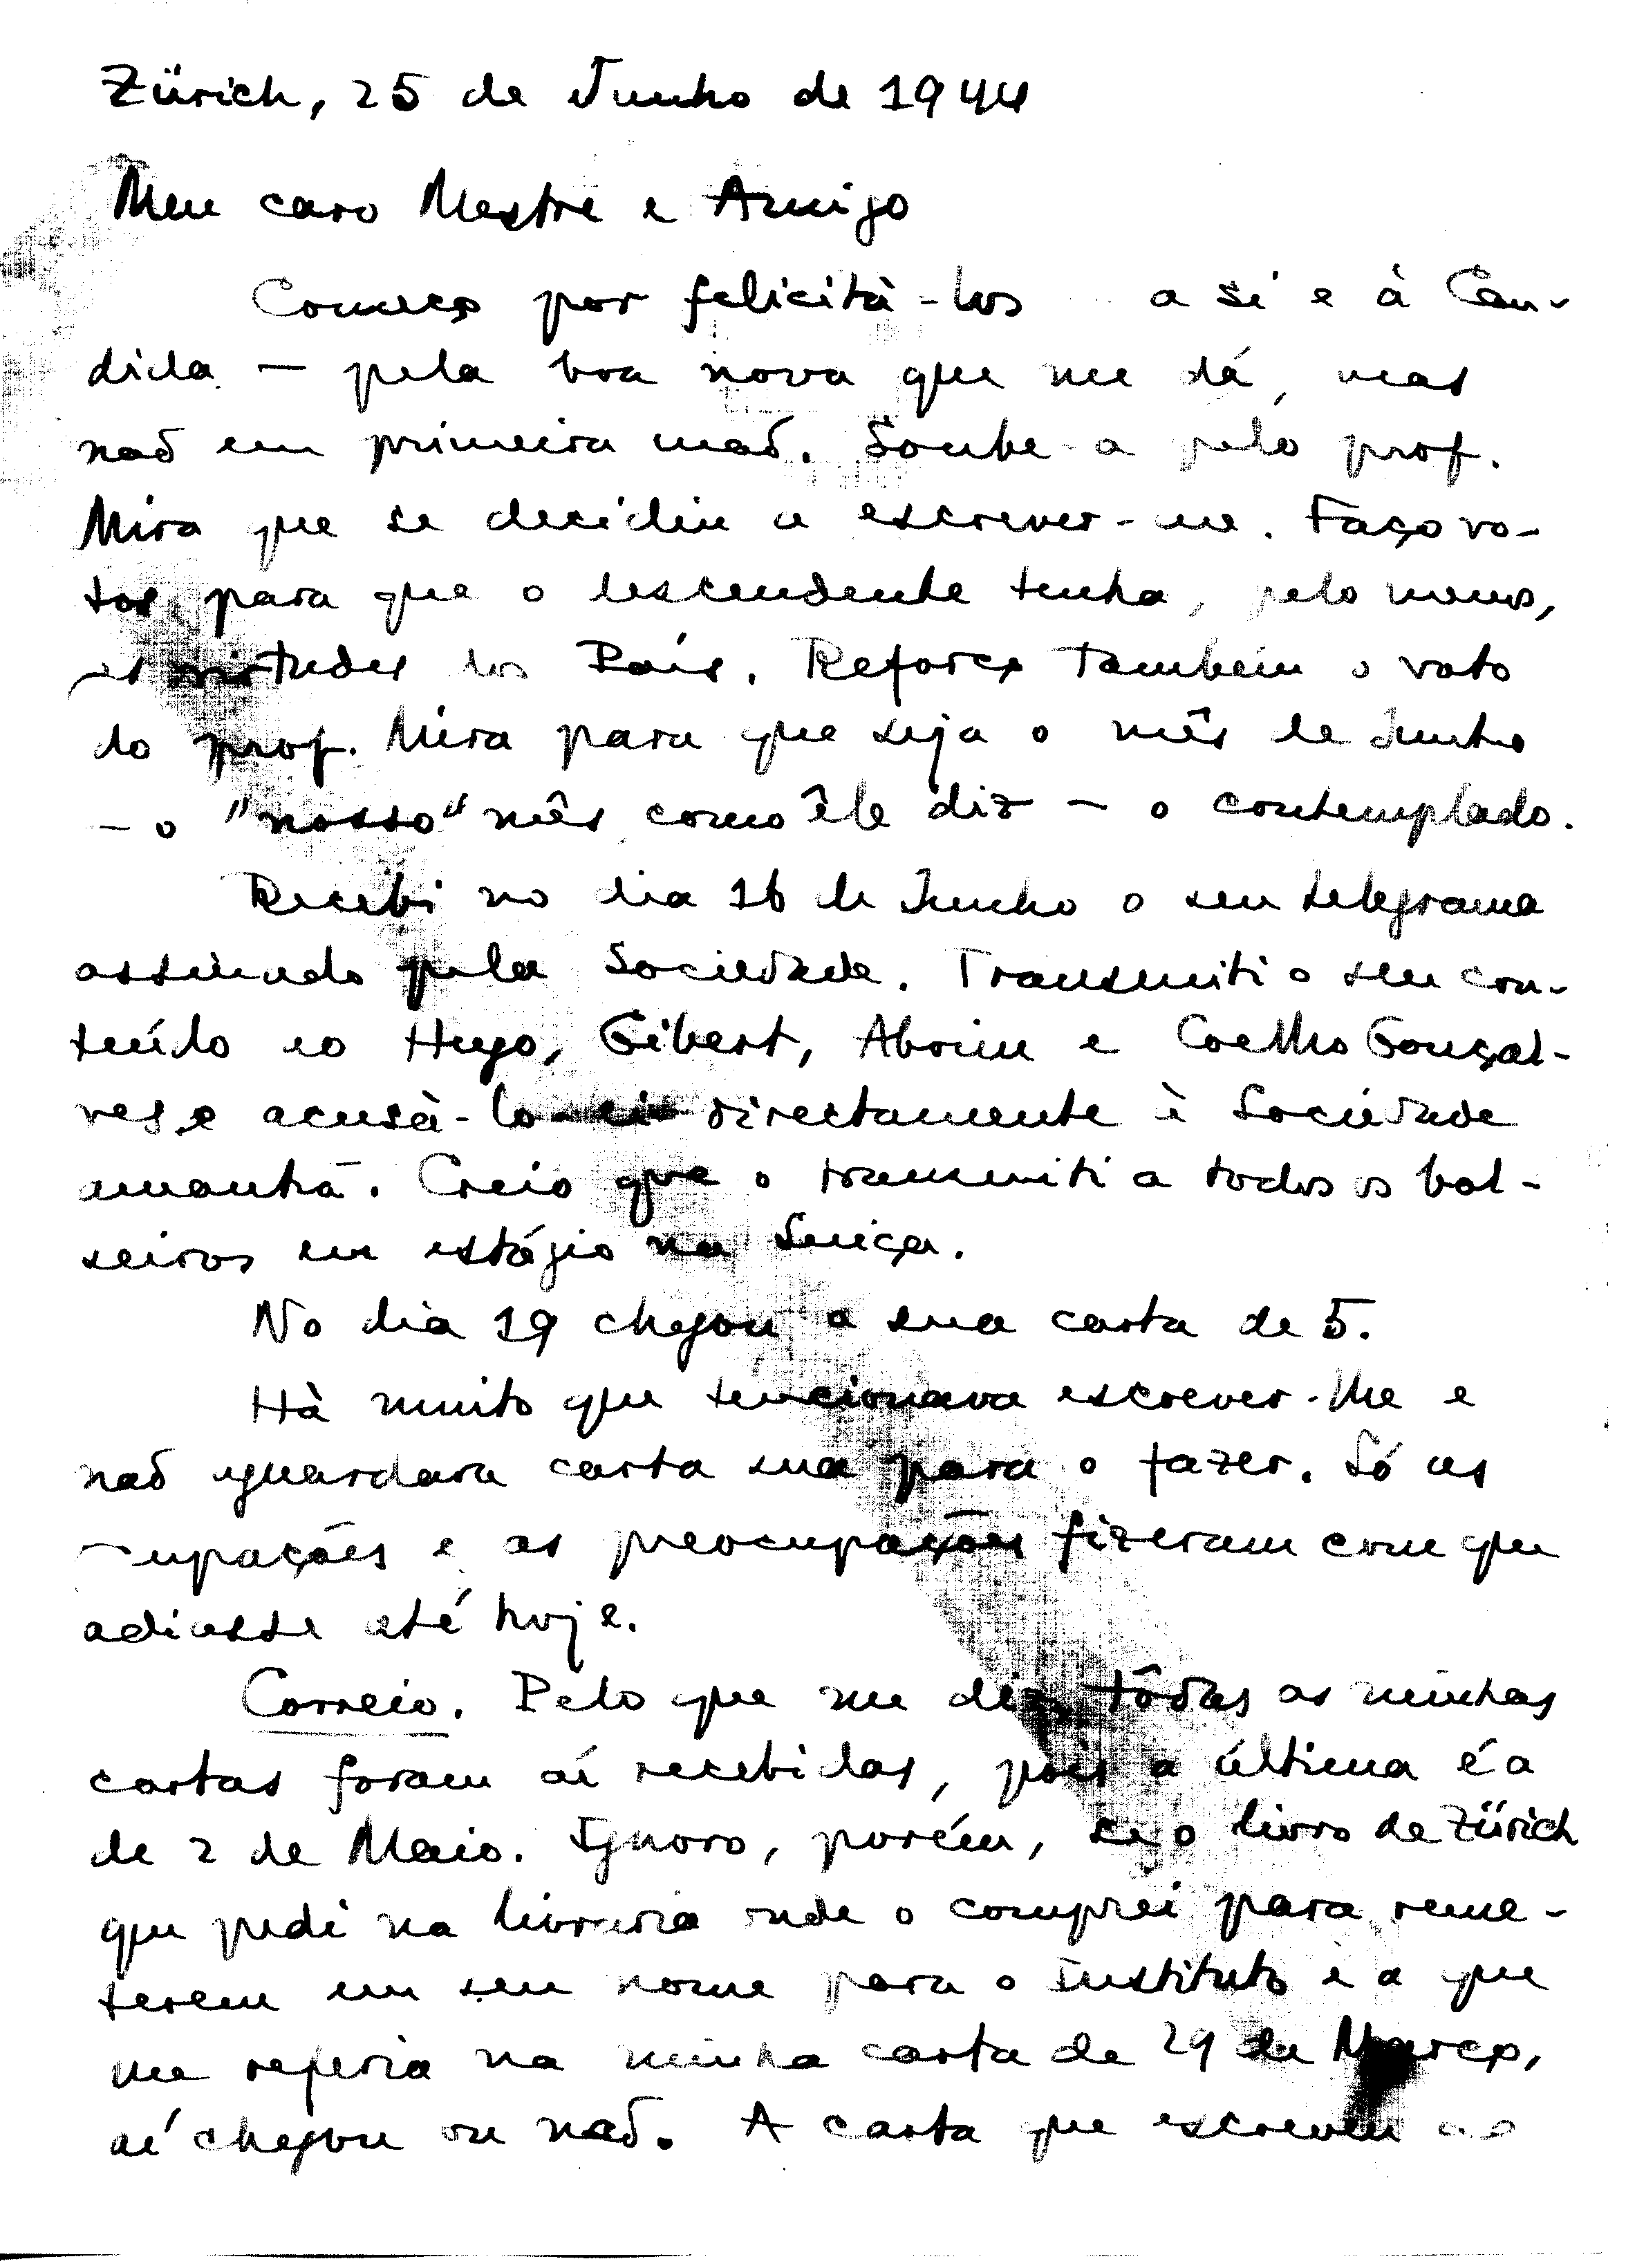 Zürich, 25 de Junho de 1944
Meu caro Mestre e Amigo
Começo por felicitá-los a si e à Cân-
dida — pela boa nova que me dá, mas
não em primeira mão. Soube-a pelo prof.
Mira que se decidiu a escrever-me. Faço vo-
tos para que o descendente tenha, pelo menos,
as virtudes dos Pais. Reforço também o voto
do prof. Mira para que seja o mês de Junho
— o "nosso" mês como êle diz — o contemplado.
Recebi no dia 16 de Junho o seu telegrama
assinado pela Sociedade. Transmiti o seu con-
teúdo ao Hugo, Gibert, Aboim e Coelho Gonçal-
ves e acusá-lo-ei directamente à Sociedade
amanhã. Creio que o transmiti a todos os bol-
seiros em estágio na Suiça.
No dia 19 chegou a sua carta de 5.
Hà muito que tencionava escrever-lhe e
não aguardara carta sua para o fazer. Só as
ocupações e as preocupações fizeram com que
adiasse até hoje.
Correio. Pelo que me diz, tôdas as minhas
cartas foram aí recebidas, pois a última é a
de 2 de Maio. Ignoro, porém, se o livro de Zürich
que pedi na livraria onde o comprei para reme-
terem em seu nome para o Instituto e a que
me referia na minha carta de 29 de Março,
aí chegou ou não. A carta que escreveu ao